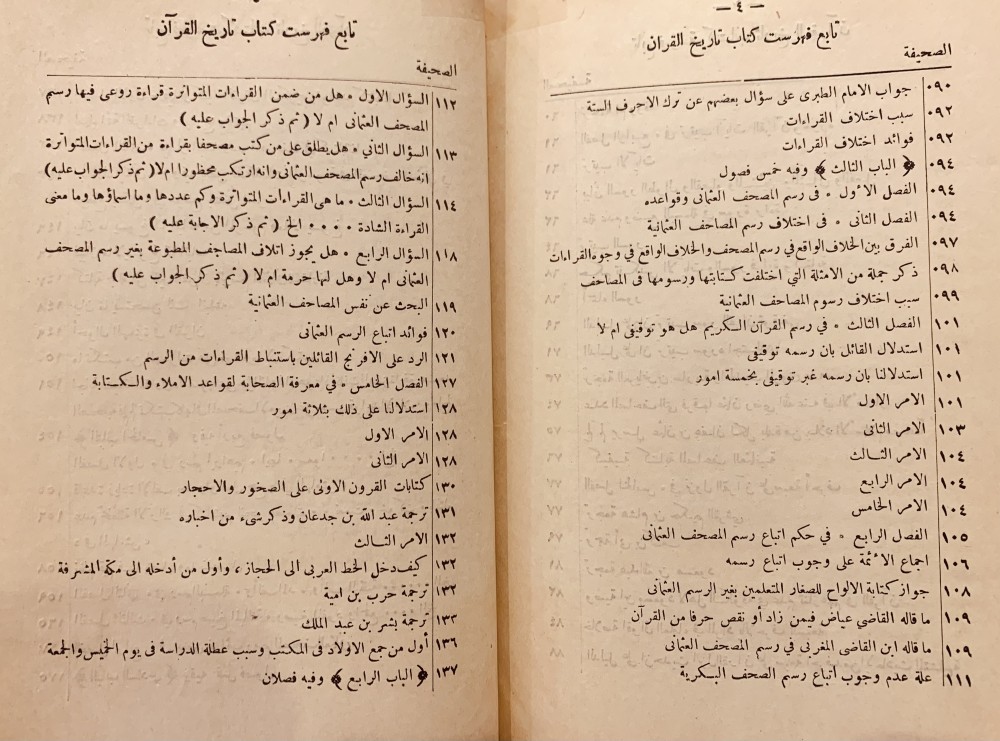 — ٤ —
تابع فهرست كتاب تاريخ القرآن
الصحيفة
٠٩٠ جواب الامام الطبرى على سؤال بعضهم عن ترك الاحرف الستة
٠٩٢ سبب اختلاف القراءات
٠٩٢ فوائد اختلاف القراءات
٠٩٤ ﴿ الباب الثالث ﴾ وفيه خمس فصول
٠٩٤ الفصل الاول • فى رسم المصحف العثمانى وقواعده
٠٩٤ الفصل الثانى • فى اختلاف رسم المصاحف العثمانية
٠٩٧ الفرق بين الخلاف الواقع في رسم المصحف والخلاف الواقع في وجوه القراءات
٠٩٨ ذكر جملة من الامثلة التي اختلفت كتابتها ورسومها فى المصاحف
٠٩٩ سبب اختلاف رسوم المصاحف العثمانية
١٠١ الفصل الثالث • في رسم القرآن الكريم هل هو توقيفى ام لا
١٠١ استدلال القائل بان رسمه توقيفى
١٠١ استدلالنا بان رسمه غير توقيفى بخمسة امور
١٠١ الامر الاول
١٠٣ الامر الثانى
١٠٤ الامر الثالث
١٠٤ الامر الرابع
١٠٤ الامر الخامس
١٠٥ الفصل الرابع • فى حكم اتباع رسم المصحف العثمانى
١٠٦ اجماع الأئمة على وجوب اتباع رسمه
١٠٨ جواز كتابة الالواح للصغار المتعلمين بغير الرسم العثمانى
١٠٩ ما قاله القاضي عياض فيمن زاد أو نقص حرفا من القرآن
١٠٩ ما قاله ابن القاضى المغربى في رسم المصحف العثمانى
١١١ علة عدم وجوب أتباع رسم الصحف البكرية
تابع فهرست كتاب تاريخ القرآن
الصحيفة
١١٢ السؤال الاول • هل من ضمن القراءات المتواترة قراءة روعى فيها رسم
المصحف العثمانى ام لا ( ثم ذكر الجواب عليه )
١١٣ السؤال الثاني • هل يطلق على من كتب مصحفا بقراءة من القراءات المتواترة
انه خالف رسم المصحف العثمانى وانه ارتكب محظورا ام لا (ثم ذكر الجواب عليه)
١١٤ السؤال الثالث • ما هى القراءات المتواترة وكم عددها وما اسماؤها وما معنى
القراءة الشادة • • • • الخ ( ثم ذكر الاجابة عليه )
١١٨ السؤال الرابع • هل يجوز اتلاف المصاحف المطبوعة بغير رسم المصحف
العثمانى ام لا وهل لها حرمة ام لا ( ثم ذكر الجواب عليه )
١١٩ البحث عن نفس المصاحف العثمانية
١٢٠ فوائد اتباع الرسم العثمانى
١٢١ الرد على الافرنج القائلين باستنباط القراءات من الرسم
١٢٧ الفصل الخامس • فى معرفة الصحابة لقواعد الاملاء والكتابة
١٢٨ استدلالنا على ذلك بثلاثة امور
١٢٨ الامر الاول
١٢٨ الامر الثانى
١٣٠ كتابات القرون الاولى على الصخور والاحجار
١٣١ ترجمة عبد الله بن جدعان وذكر شىء من اخباره
١٣٢ الامر الثالث
١٣٢ كيف دخل الخط العربى الى الحجاز، وأول من أدخله الى مكة المشرفة
١٣٢ ترجمة حرب بن امية
١٣٣ ترجمة بشر بن عبد الملك
١٣٦ أول من جمع الاولاد فى المكتب وسبب عطلة الدراسة فى يوم الخميس والجمعة
١٣٧ ﴿ الباب الرابع ﴾ وفيه فصلان